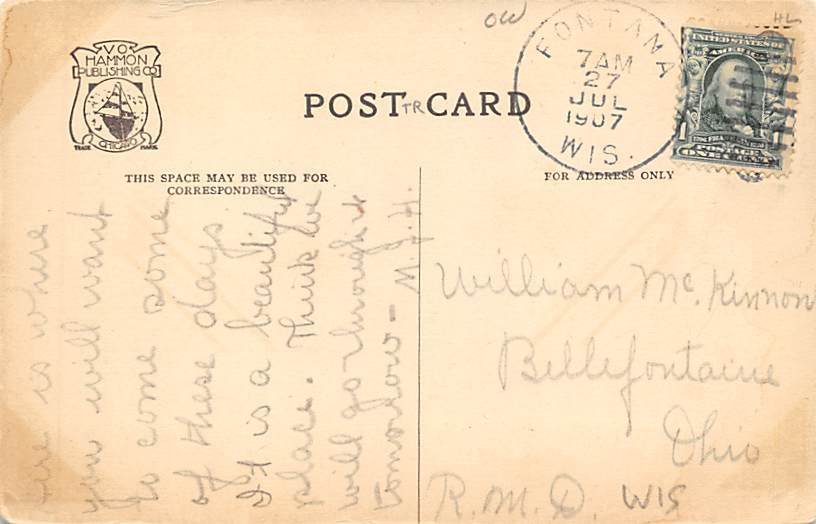 V.O.
HAMMON
PUBLISHING CO
TRADE CHICAGO MARK
POST CARD
TR
OW
HL
FONTANA
7AM
27
JUL
1907
WIS.
UNITED STATES OF
AMERICA
1
POSTAGE
ONE CENT
THIS SPACE MAY BE USED FOR
CORRESPONDENCE
FOR ADDRESS ONLY
is where
you will want
to come some
of these days
It is a beautiful
place. Think we
will go through it
tomorrow - M. J. H.
William Mc. Kinnon
Bellefontaine
Ohio
R.M.D. WIS